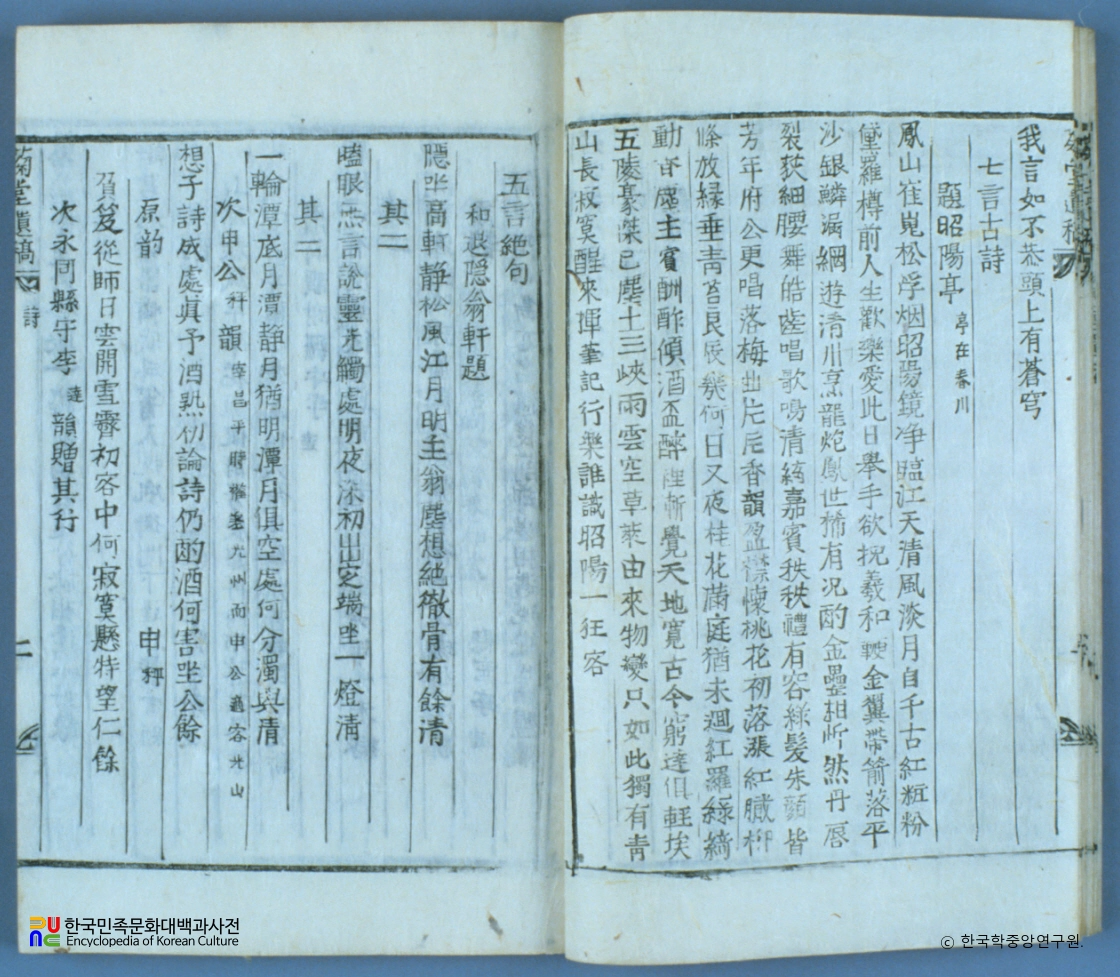 我言如不恭頭上有蒼穹
七言古詩
題昭陽亭 亭在春川
鳳山崔嵬松浮烟昭陽鏡净臨江天清風淡月自千古紅粧粉
黛羅樽前人生歡樂愛此日擧手欲挽羲和鞭金翼帶箭落平
沙銀鱗漏綱遊清川烹龍炮鳳世稀有况酌金罍相忻然丹唇
裂荻細腰舞皓齒唱歌鳴清絃嘉賓秩秩禮有容綠髮朱顔皆
芳年府公更唱落梅曲片片香韻盈襟懷桃花初落漲紅臓柳
條放緣垂靑苔良辰幾何日又夜桂花滿庭猶未廻紅羅綠綺
動香塵主賓酬酢傾酒盃醉裡漸覺天地寬古今窮達俱輕埃
五陵豪傑已塵土三峽雨雲空草萊由來物變只如此獨有靑
山長寂寞醒來揮筆記行樂誰識昭陽一狂客
五言絶句
和退隱翁軒題
隱坐高軒靜松風江月明主翁塵想絶徹骨有餘清
其二
瞌眼忘言說靈光觸處明夜深初出定端坐一燈淸
其二
一輪潭底月潭靜月猶明潭月俱空處何分濁與清
次申公 秤 韻 宰昌平時 九州而申公 客光山
想子詩成處眞予酒熟初論詩仍酌酒何害坐公餘
原韵 申秤
負笈從師日雲開雪霽初客中何寂寞懸特望仁餘
次永同縣守李 韻贈其行
菊堂遺稿
詩
二